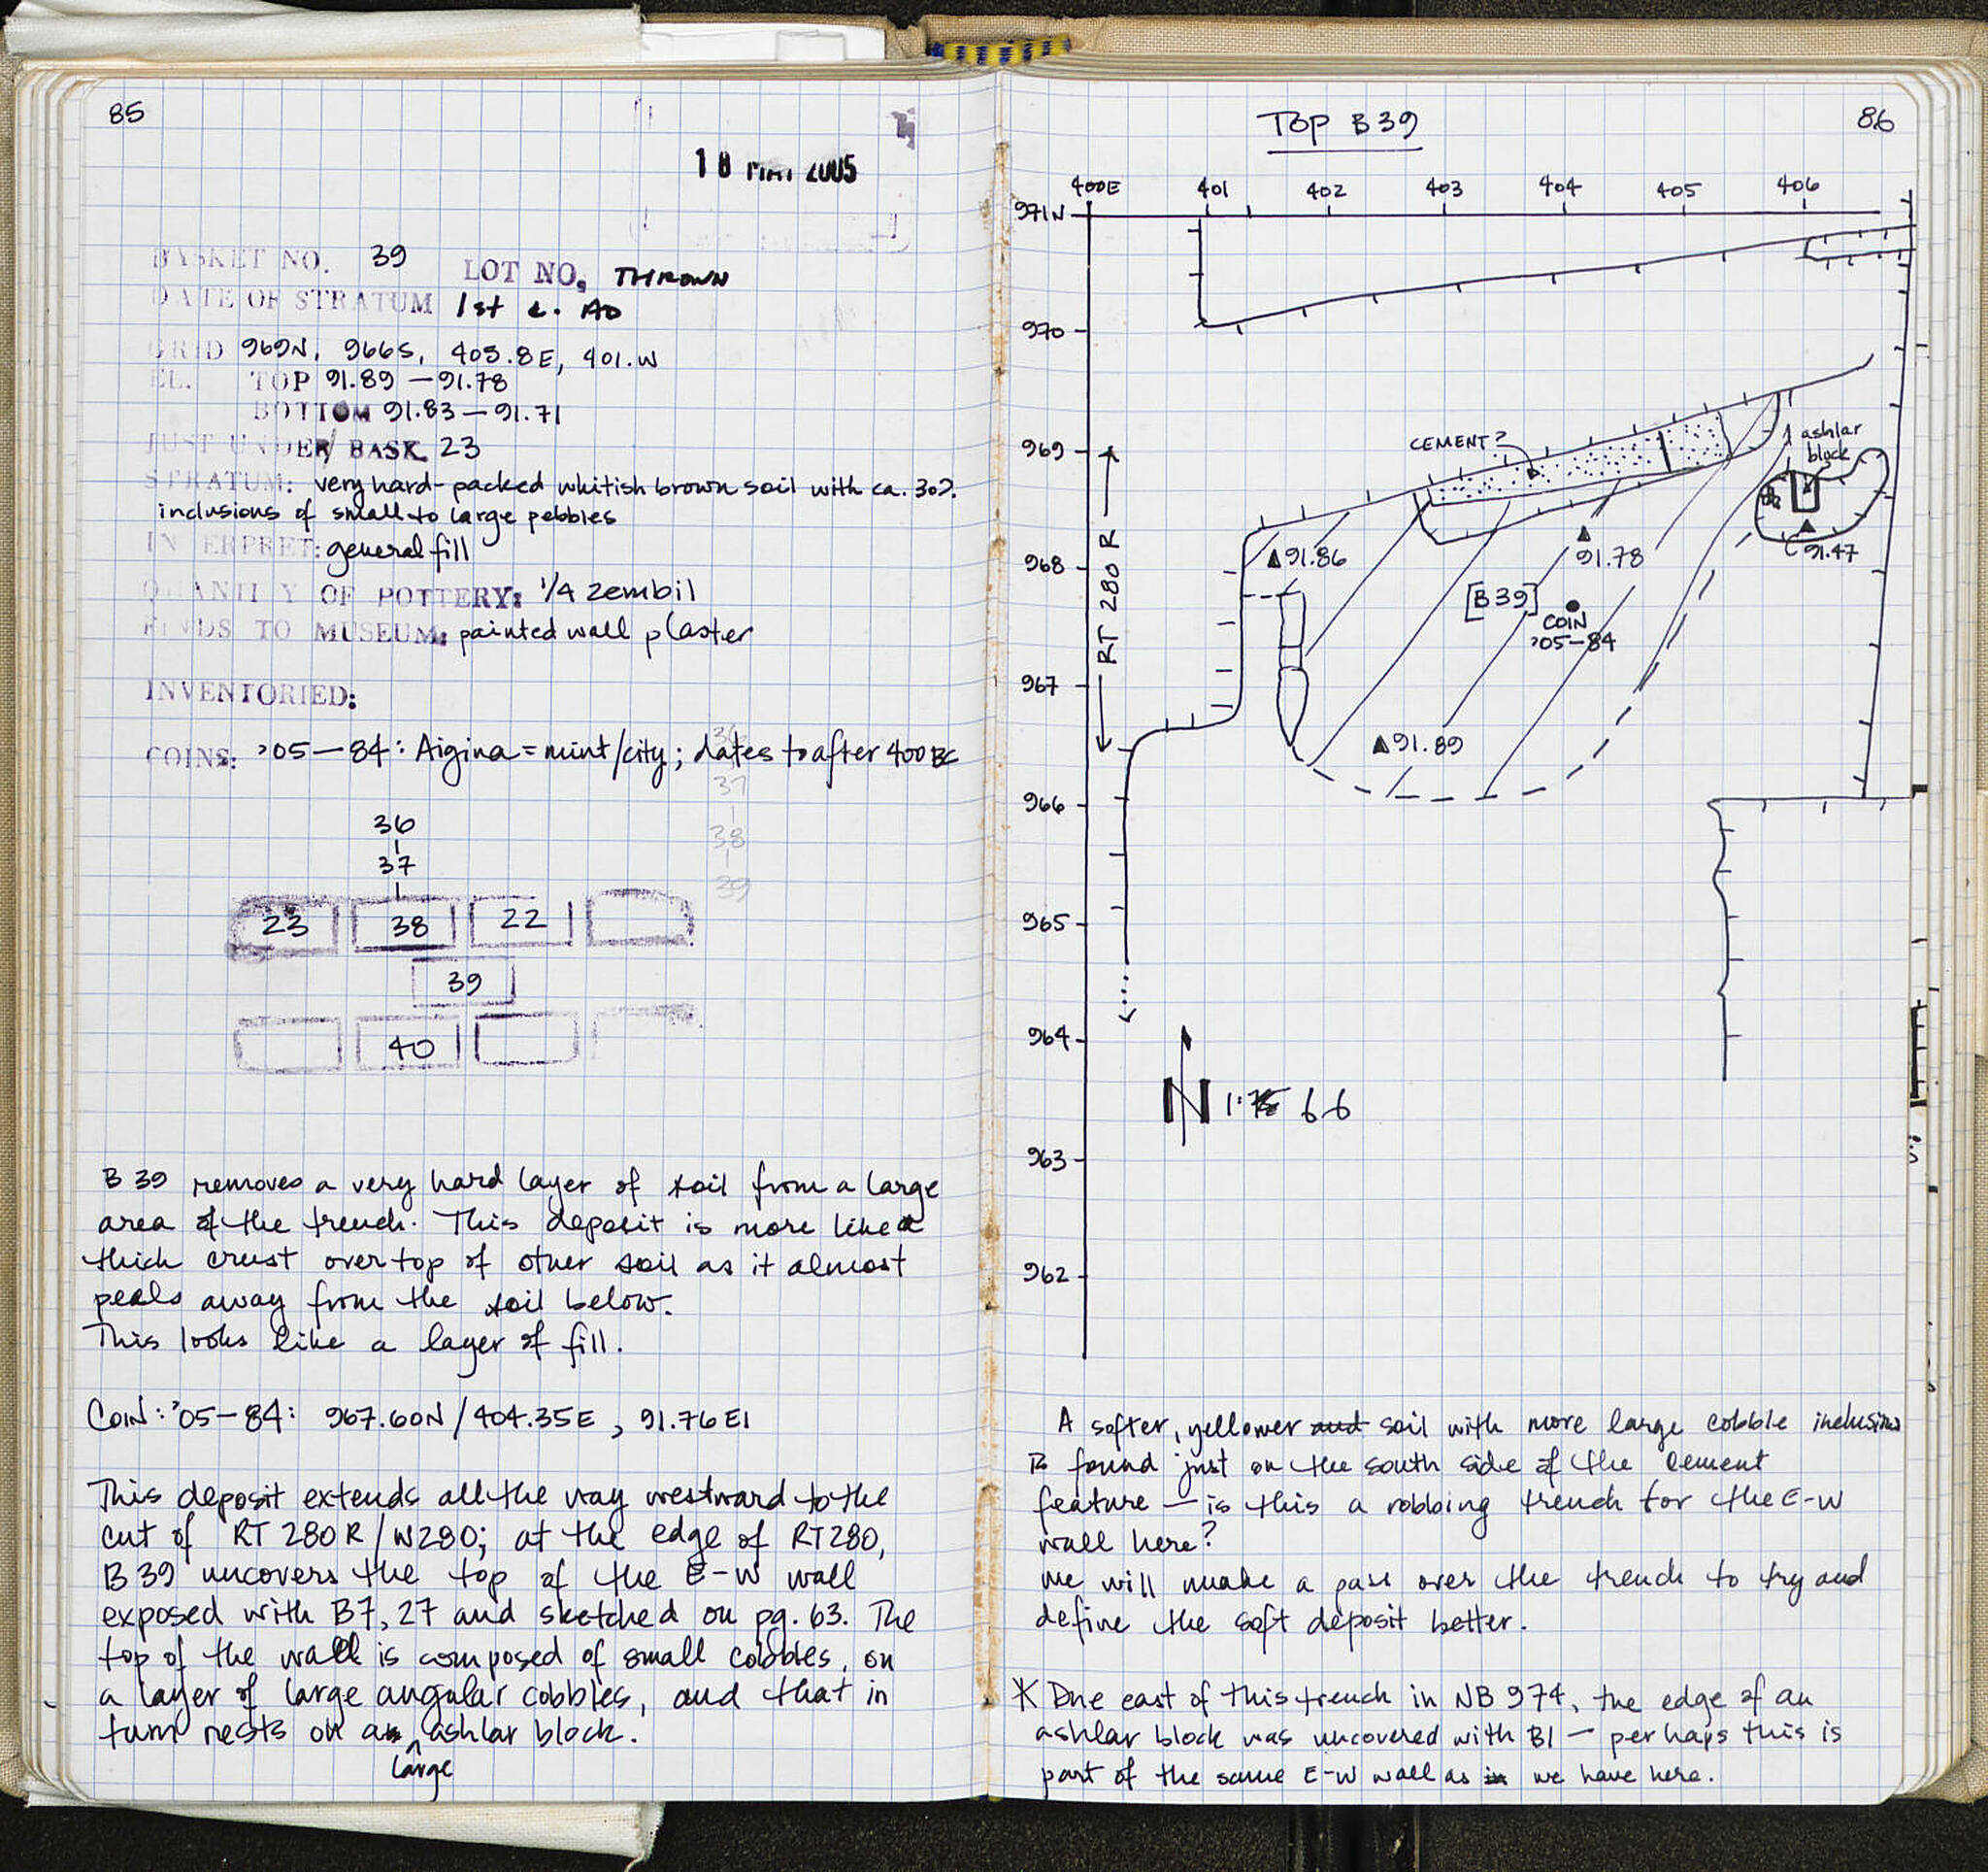 85
18 MAY 2005
BASKET NO. 39 LOT NO. THROWN
DATE OF STRATUM 1st c. AD
GRID 969N, 966S, 403.8E, 401.W
EL. TOP 91.89 — 91.78
BOTTOM 91.83 — 91.71
JUST UNDER BASK 23
STRATUM: very hard-packed whitish brown soil with ca. 30%
inclusions of small to large pebbles
INTERPRET: general fill
QUANTITY OF POTTERY: 1/4 zembil
FINDS TO MUSEUM: painted wall plaster
INVENTORIED:
COINS: '05—84: Aigina = mint/city; dates to after 400 BC
36
37
37
38
39
23 38 22
39
40
B 39 removes a very hard layer of soil from a large
area of the trench. This deposit is more like a
thick crust over top of other soil as it almost
peals away from the soil below.
This looks like a layer of fill.
COIN: '05-84: 967.60N/404.35E, 91.76 El
This deposit extends all the way westward to the
cut of RT 280 R/W280; at the edge of RT280,
B 39 uncovers the top of the E-W wall
exposed with B7, 27 and sketched on pg. 63. The
top of the wall is composed of small cobbles, on
a layer of large angular cobbles, and that in
turn rests on a large ashlar block.
TOP B39
86
400E 401 402 403 404 405 406
971N
970
969
968
967
966
965
964
963
962
CEMENT?
ashlar
block
RT 280 R
91.86
91.78
91.47
[B39]
COIN
'05-84
91.89
N 1:66
A softer, yellower and soil with more large cobble inclusions
is found just on the south side of the cement
feature — is this a robbing trench for the E-W
wall here?
we will make a pass over the trench to try and
define the soft deposit better.
* Due east of this trench in NB 974, the edge of an
ashlar block was uncovered with B1 — perhaps this is
part of the same E-W wall as in we have here.